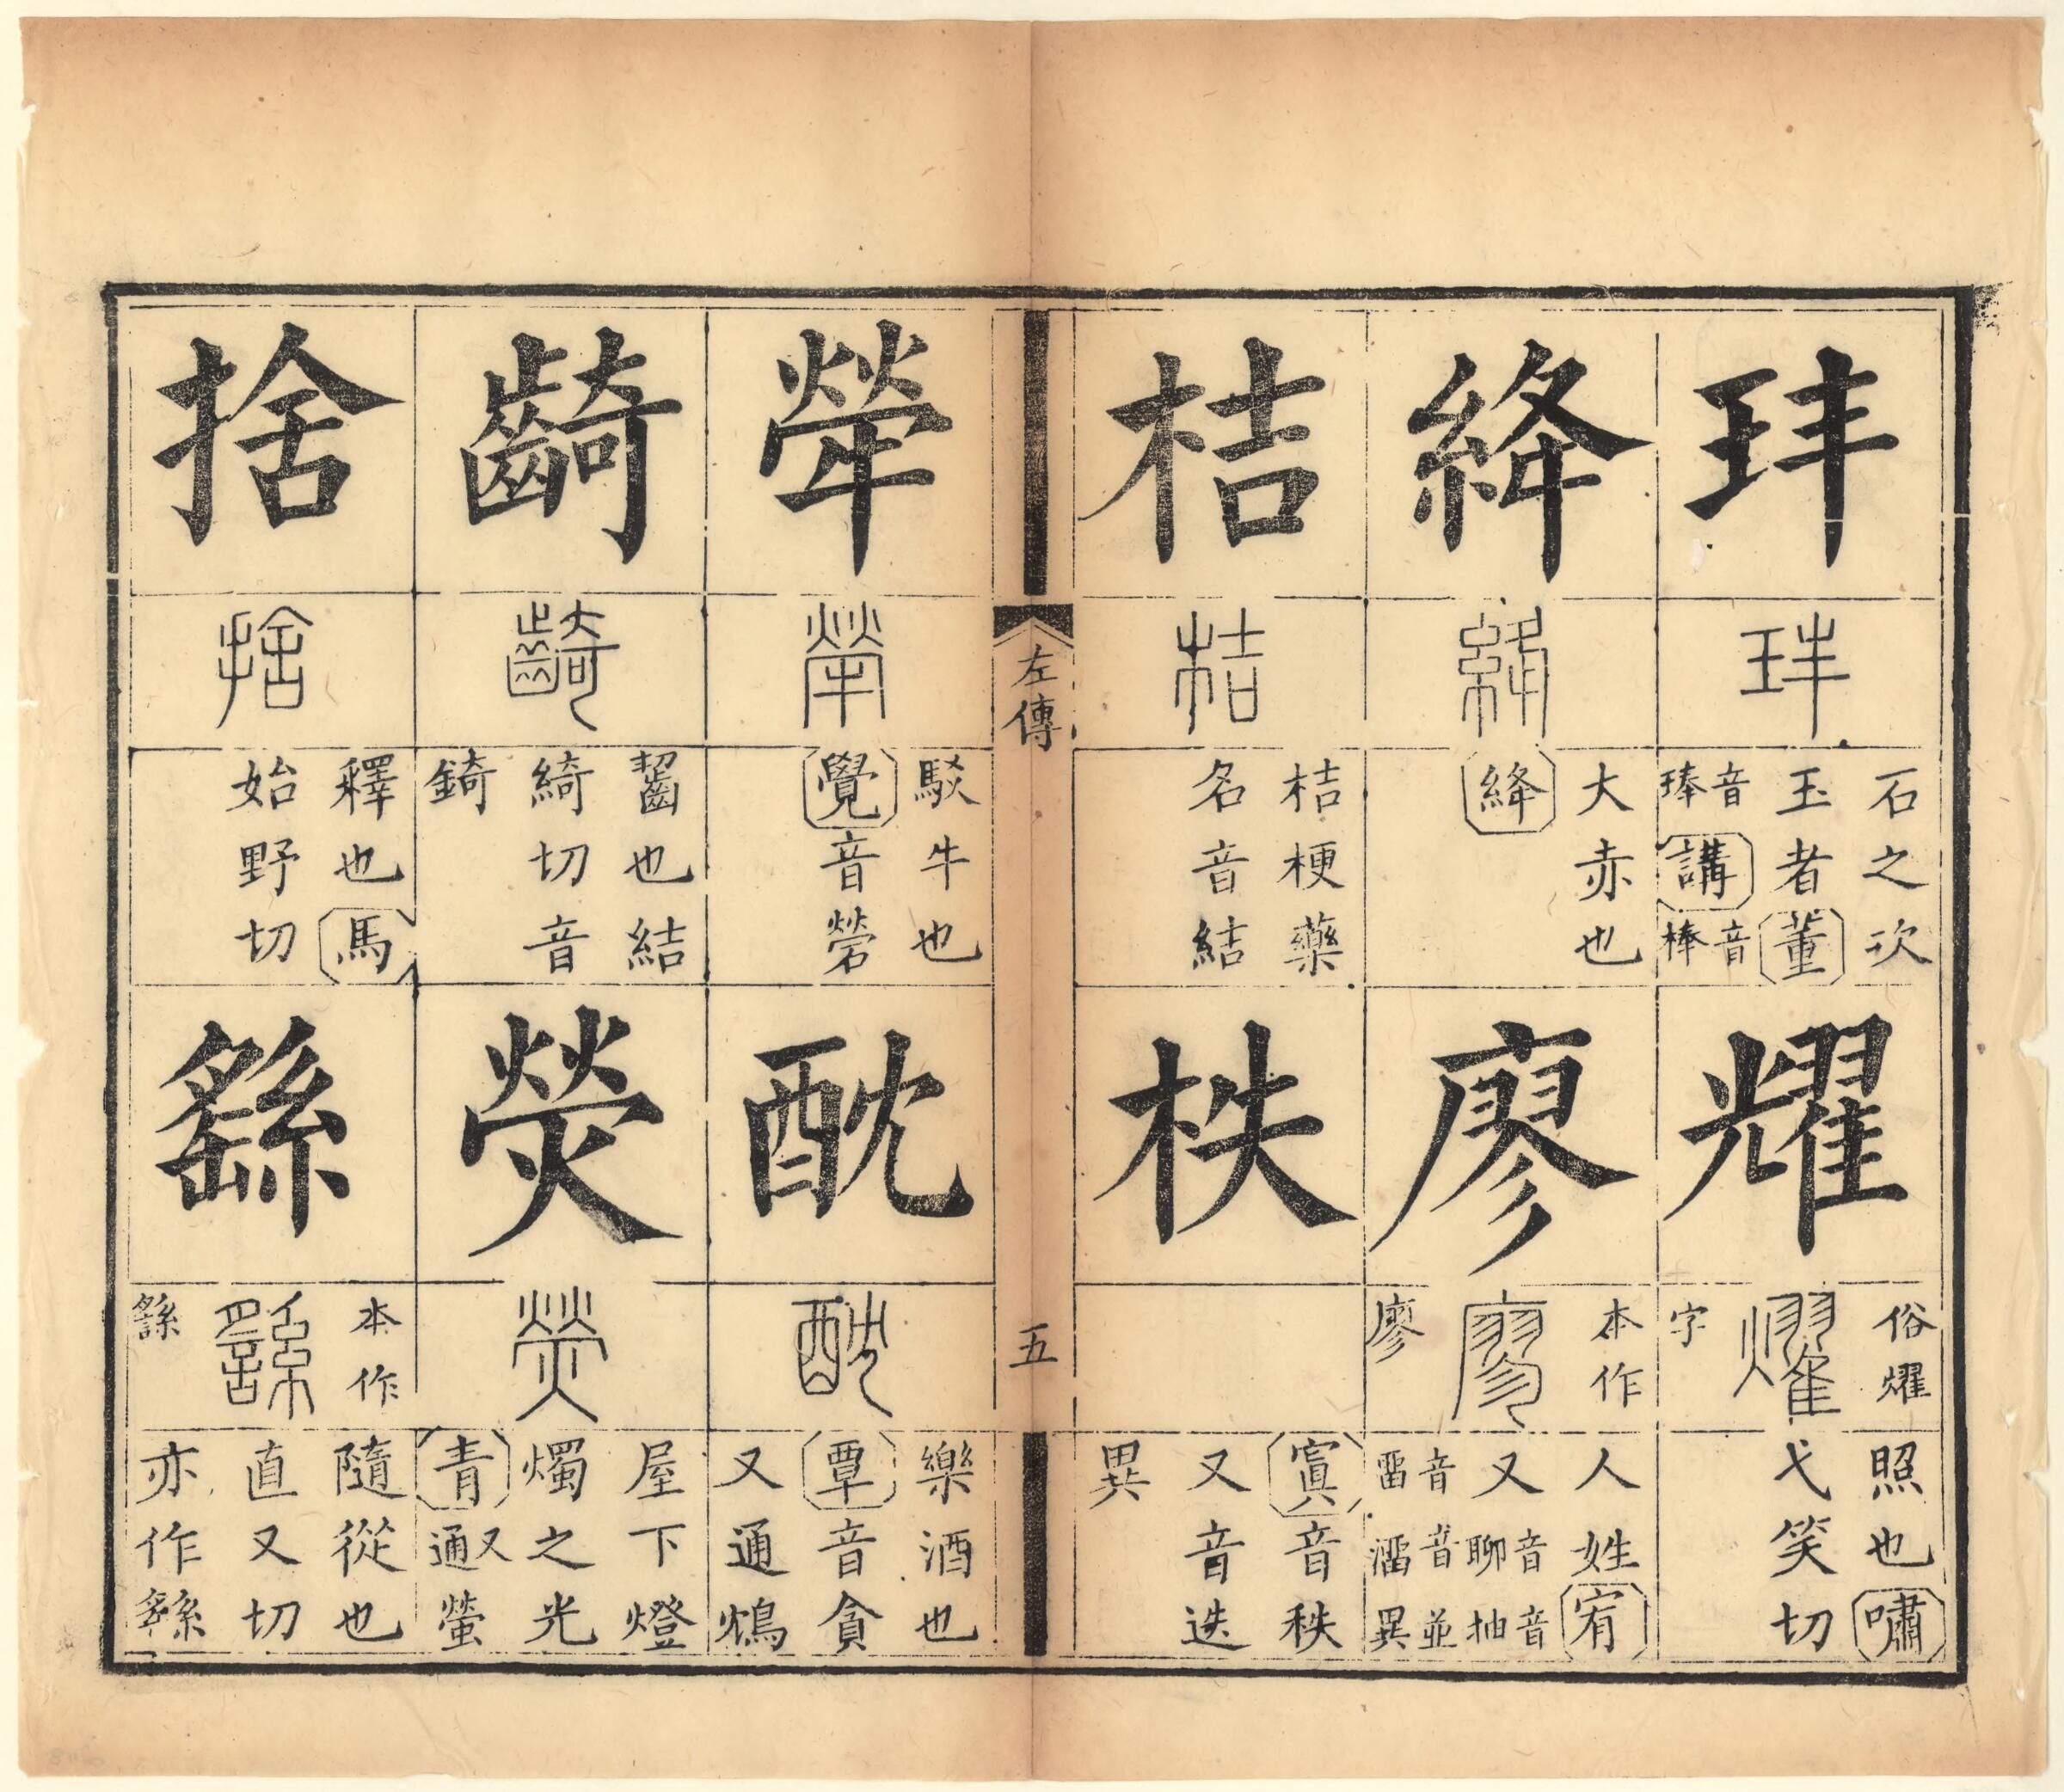 玤
玤
石之次
玉者董
音琫講音棒
耀
燿
俗燿
字
照也嘯
弋笑切
絳
絳
大赤也
絳
廖
廖
本作
廖
人姓宥
又音聊音抽
音畱音澑並異
桔
桔
桔梗藥
名音結
柣
寘音秩
又音迭
異
左傳
五
犖
犖
駁牛也
覺音
齮
齮
齧也結
綺切音
錡
捨
捨
釋也馬
始野切
酖
酖
樂酒也
覃音貪
又通鴆
熒
熒
屋下燈
燭之光
青又通螢
繇
䌛
本作
䌛
隨從也
直又切
亦作繇